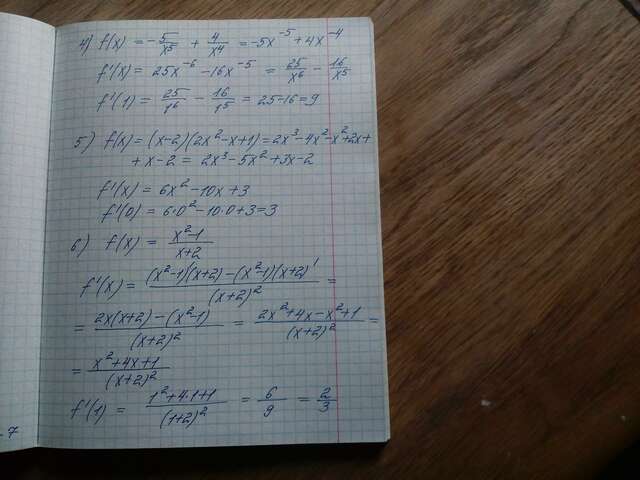 4) f(x) = -5/x⁵ + 4/x⁴ = -5x⁻⁵ + 4x⁻⁴
f'(x) = 25x⁻⁶ - 16x⁻⁵ = 25/x⁶ - 16/x⁵
f'(1) = 25/1⁶ - 16/1⁵ = 25-16 = 9
5) f(x) = (x-2)(2x²-x+1) = 2x³-4x²-x²+2x+
+x-2 = 2x³-5x²+3x-2
f'(x) = 6x²-10x+3
f'(0) = 6·0²-10·0+3=3
6) f(x) = (x²-1)/(x+2)
f'(x) = ((x²-1)'(x+2)-(x²-1)(x+2)')/(x+2)² =
= (2x(x+2)-(x²-1))/(x+2)² = (2x²+4x-x²+1)/(x+2)² =
= (x²+4x+1)/(x+2)²
f'(1) = (1²+4·1+1)/(1+2)² = 6/9 = 2/3